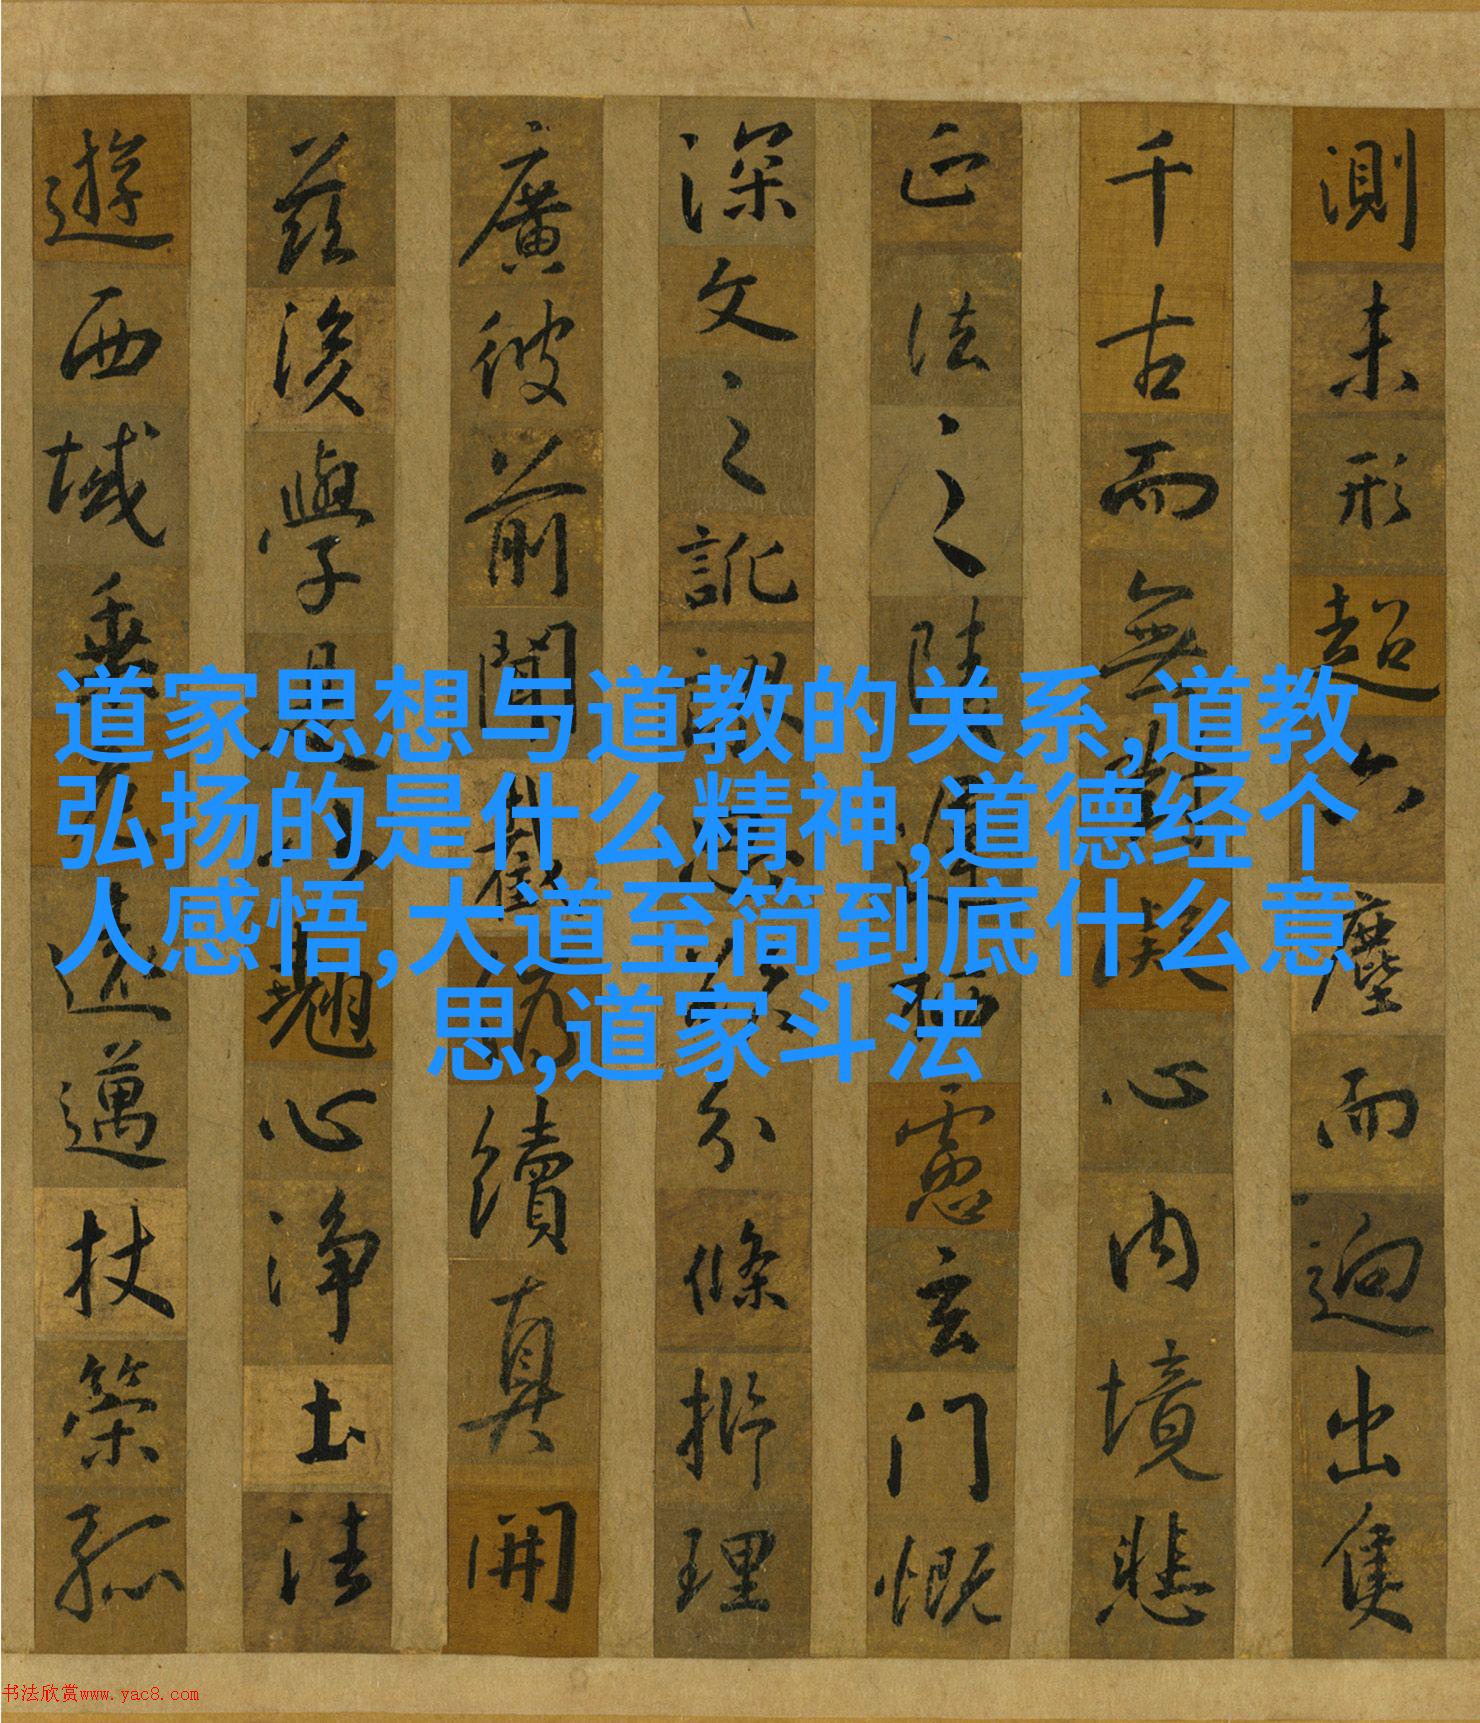 道家思想与道教的关系,道教
弘扬的是什么精神,道德经个
人感悟,大道至简到底什么意
思,道家斗法
測未形超六塵而迥出隻
千古而無對凝心內境悲
正法之陵遲栖慮玄門慨
深文之訛謬思欲分條析理
廣彼前聞截偽續真開
茲後學是以翹心淨土法
遊西域乘危遠邁杖策孤
书法欣赏www.yac8.com